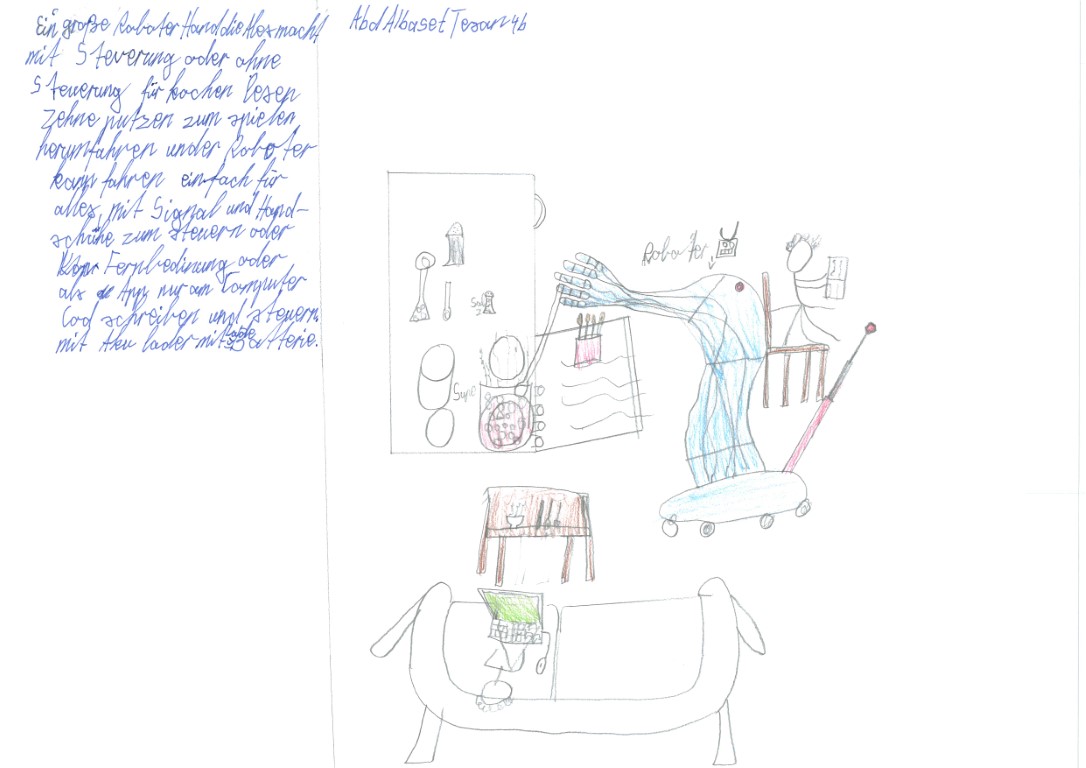 Ein große Roboter Hand die Alles macht
mit Steuerung oder ohne
Steuerung für kochen lesen
Zehne putzen zum spielen
herumfahren und er Roboter
kann fahren einfach für
alles, mit Signal und Hand-
schuhe zum steuern oder
Fernbedinung oder
als App nur am Computer
Cod schreiben und steuern
mit Akku lader mit Batterie.
Abd Albaset Tesan 4b
Roboter
Salz
Supe